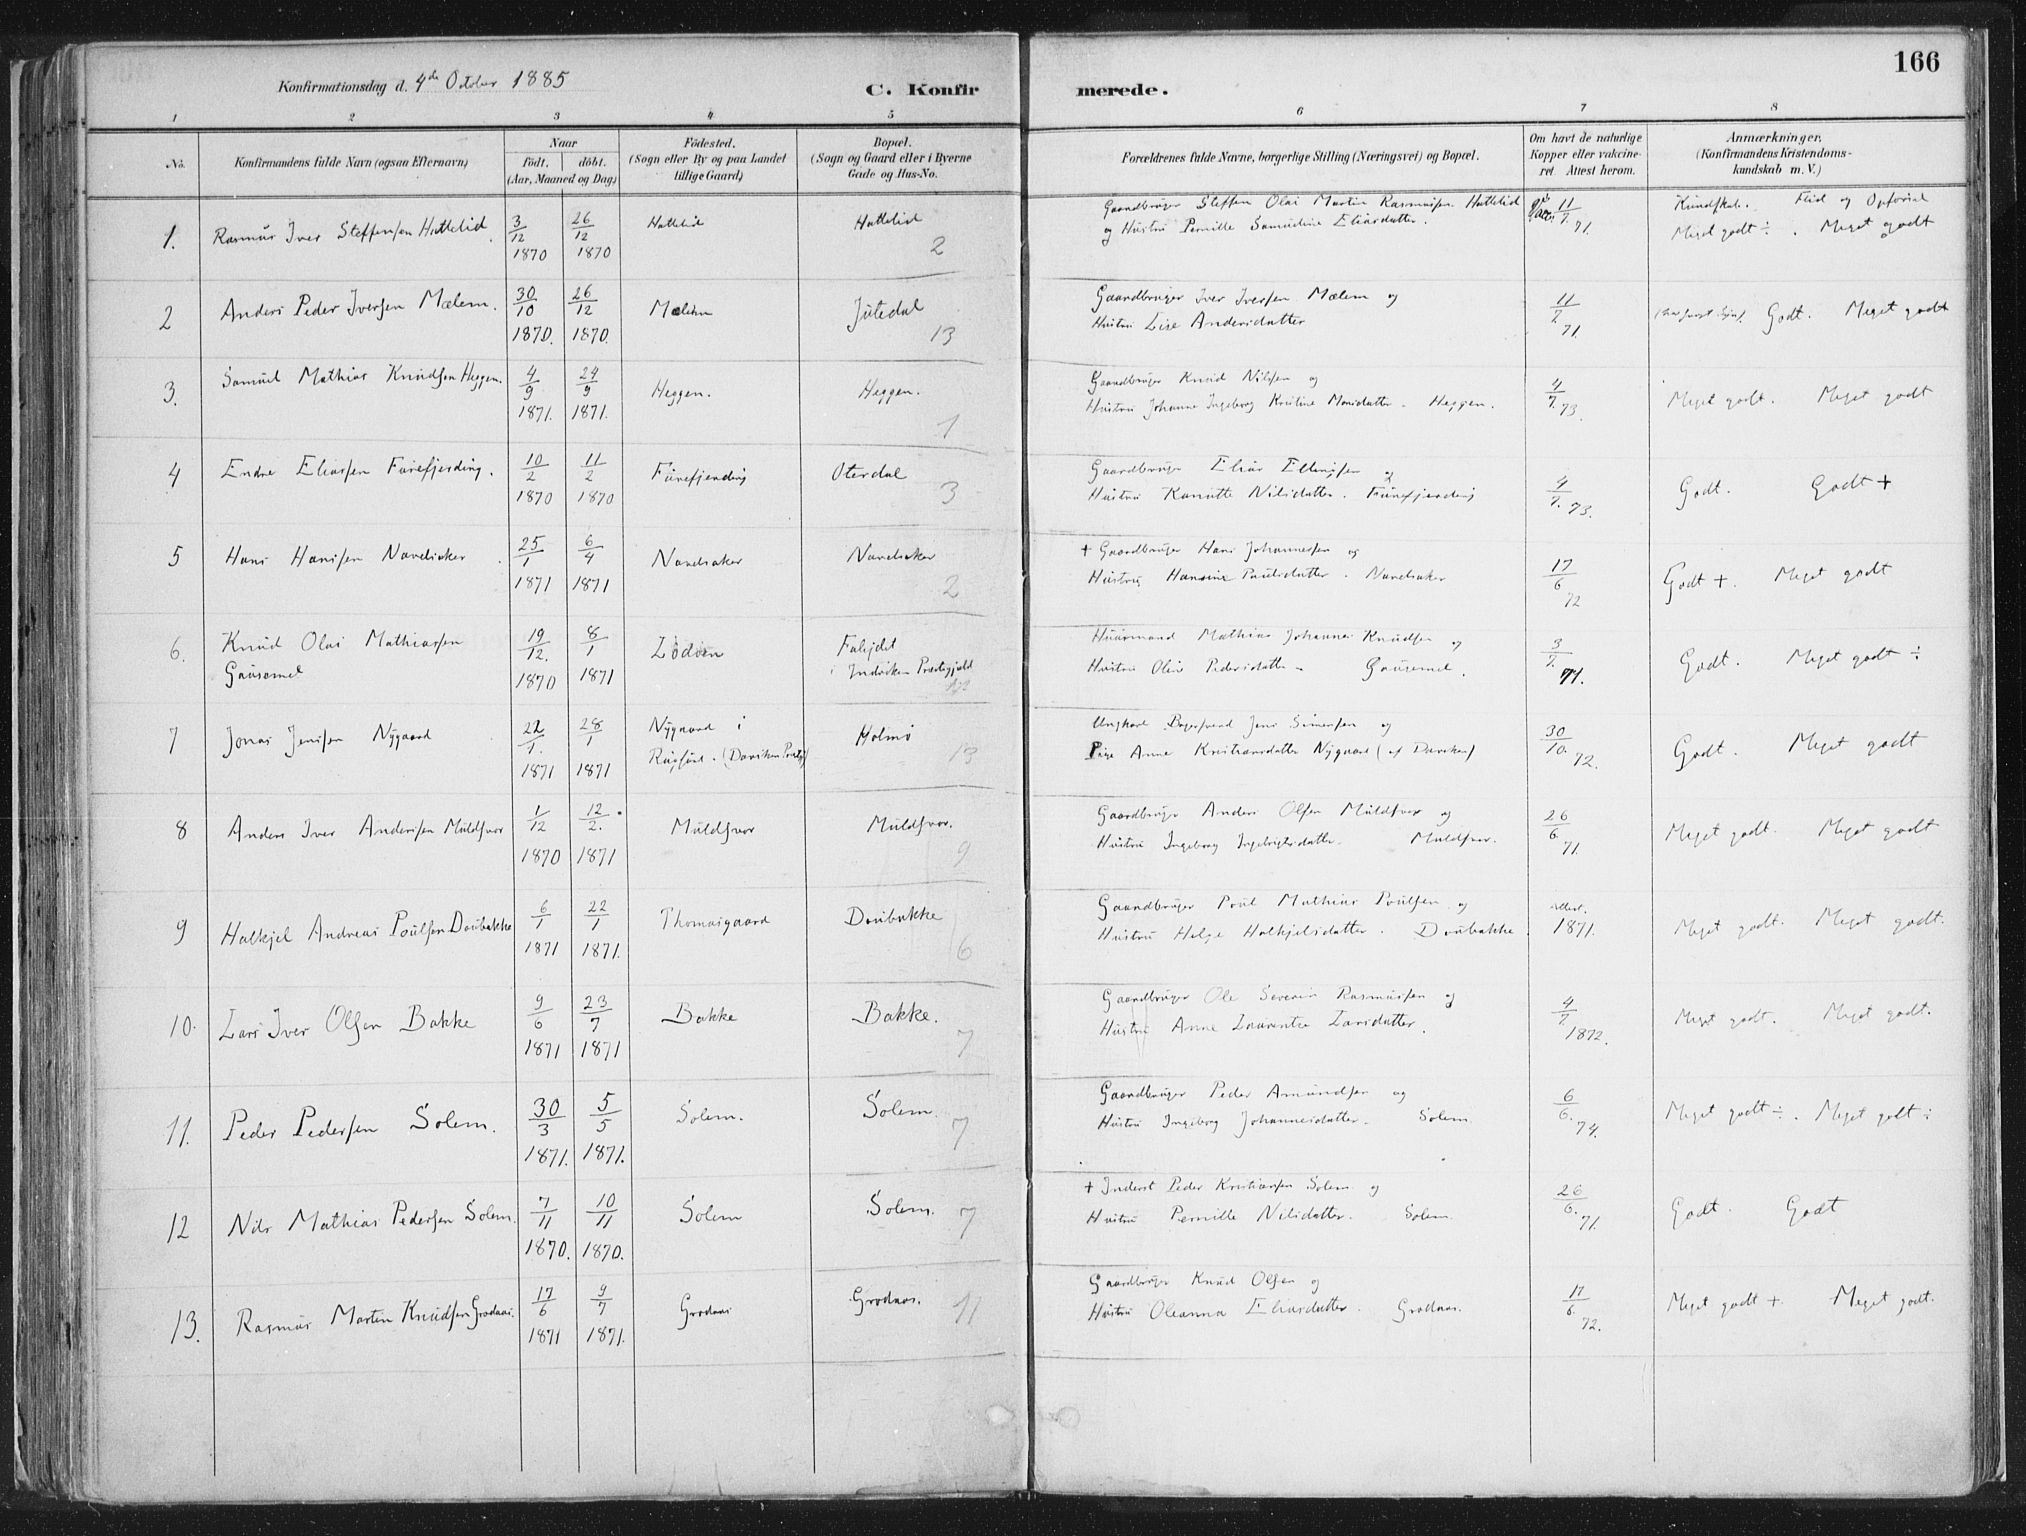 166
Konfirmationsdag d. 4de October 1885
C. Konfirmerede.
1 2 3 4 5 6 7 8
No.
Konfirmandens fulde Navn (ogsaa Efternavn)
Naar
födt. döbt.
(Aar, Maaned og Dag)
Födested.
(Sogn eller By og paa Landet
tillige Gaard)
Bopæl.
(Sogn og Gaard eller i Byerne
Gade og Hus-No.
Forældrenes fulde Navne, borgerlige Stilling (Næringsvei) og Bopæl.
Om havt de naturlige
Kopper eller vakcine-
ret. Attest herom.
Anmærkninger.
(Konfirmandens Kristendoms-
kundskab m. V.)
Kundskab. Flid og Opførsel
1. Rasmus Iver Steffensen Hattelid 3/12 1870 26/12 1870 Hattelid Hattelid 2
Gaardbruger Steffen Olai Martin Rasmusen Hattelid
og Hustru Pernille Samueline Eliasdatter. 11/7 71. Meget godt ÷. Meget godt
2 Anders Peder Iversen Mælem. 30/10 1870. 26/12 1870. Mælem Jütedal 13
Gaardbruger Iver Iversen Mælem og
Hustru Lise Andersdatter 11/7 71. Godt. Meget godt
3. Samuel Mathias Knudsen Heggen. 4/9 1871. 24/9 1871. Heggen. Heggen. 1
Gaardbruger Knud Nilsen og
Hustru Johanne Ingeborg Kristine Monsdatter. Heggen. 4/7. 73. Meget godt. Meget godt
4 Endre Eliassen Færefjerding. 10/2 1870 11/2 1870 Færefjerding Oterdal 3
Gaardbruger Elias Ellingsen og
Hustru Kanutte Nilsdatter. Færefjerding 4/7. 73. Godt. Godt +
5 Hans Hansen Navelsaker 25/1 1871 6/4 1871 Navelsaker Navelsaker 2
+ Gaardbruger Hans Johannessen og
Hustru Hansine Paulsdatter. Navelsaker 17/6 72 Godt +. Meget godt
6. Knud Olai Mathiassen
Gausemel 19/12. 1870 8/1 1871 Lødøen Faleidet
i Indviken Prestegjeld
Huusmand Mathias Johannes Knudsen og
Hustru Oline Pedersdatter - Gausemel. 3/7. 71. Godt. Meget godt ÷
7 Jonas Jensen Nygaard 22/1. 1871 28/1 1871 Nygaard i
Rugsund. (Daviken Prestgj) Holmø 13
Ungkarl Jens Simensen og
Pige Anne Kristiansdatter Nygaard (af Daviken) 30/10. 72. Godt. Meget godt
8 Anders Iver Andersen Muldsvor 1/12 1870 12/2. 1871 Muldsvor Muldsvor. 9
Gaardbruger Anders Olsen Muldsvor og
Hustru Ingeborg Ingebrigtsdatter. Muldsvor. 26/6 71. Meget godt. Meget godt
9 Halkjel Andreas Poulsen Doubakke 6/1 1871 22/1 1871. Thomasgaard Doubakke 6
Gaardbruger Poul Mathias Poulsen og
Hustru Helge Halkjelsdatter. Doubakke Attest. 1871. Meget godt. Meget godt.
10. Lars Iver Olsen Bakke 9/6 1871 23/7 1871 Bakke Bakke. 7
Gaardbruger Ole Severin Rasmussen og
Hustru Anne Laurentse Larsdatter. 4/7. 1872. Meget godt. Meget godt.
11. Peder Pedersen Solem. 30/3 1871. 5/5 1871. Solem. Solem. 7
Gaardbruger Peder Amundsen og
Hustru Ingeborg Johannesdatter. Solem 6/6. 74. Meget godt ÷. Meget godt ÷
12 Nils Mathias Pedersen Solem. 7/11 1870. 10/11 1870. Solem Solem. 7
+ Inderst Peder Kristiansen Solem og
Hustru Pernille Nilsdatter. Solem. 26/6. 71. Godt. Godt
13. Rasmus Martin Knudsen Grodaas. 17/6 1871 9/7 1871. Grodaas Grodaas. 11
Gaardbruger Knud Olsen og
Hustru Oleanna Eliasdatter. Grodaas. 17/6. 72. Meget godt +. Meget godt.